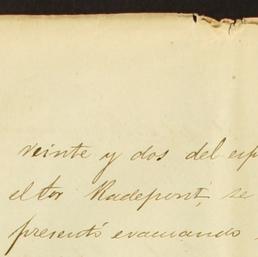 veinte y dos del esp
el tor Radepont, se
presentó evacuando